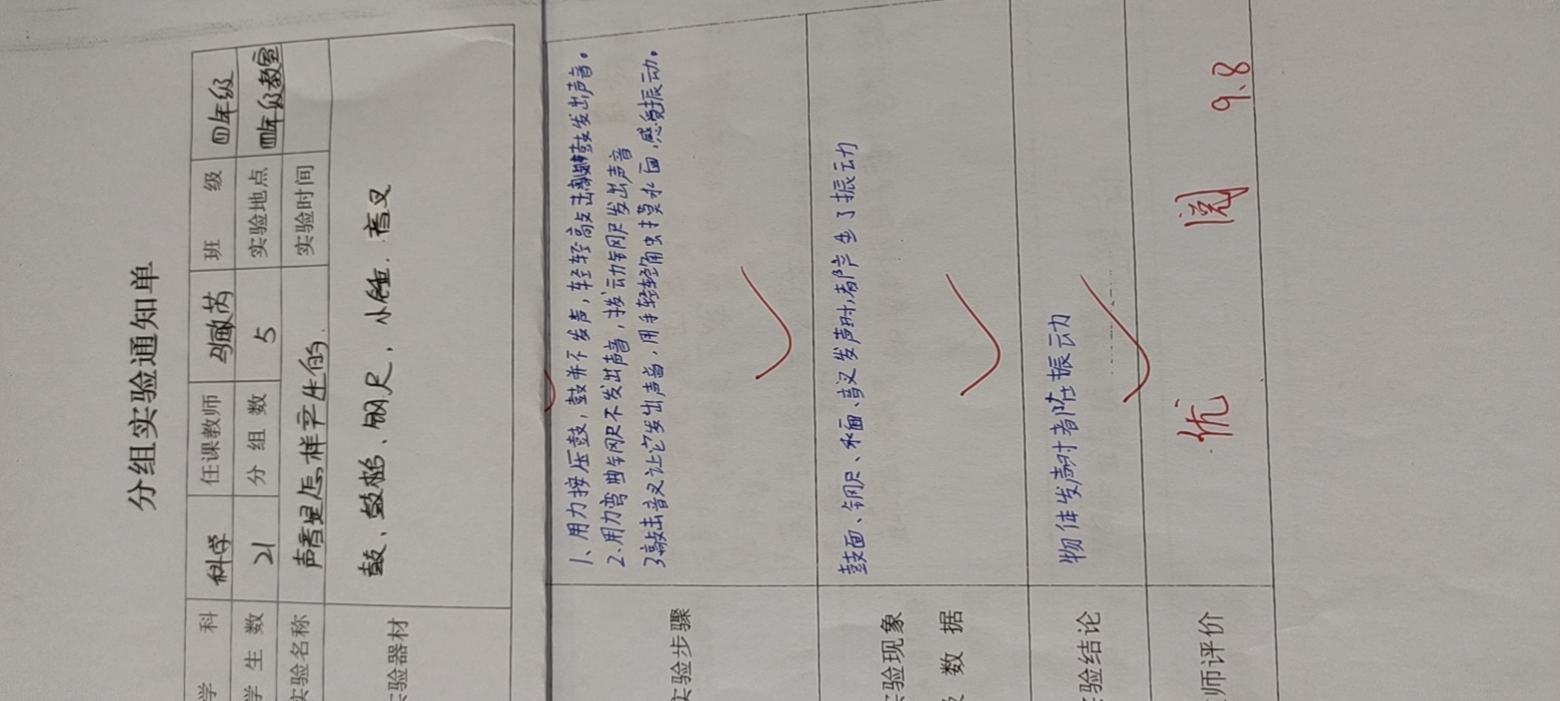 分组实验通知单
学 科 科学 任课教师 敏芮 班 级 四年级
学 生 数 21 分 组 数 5 实验地点 四年级教室
实验名称 声音是怎样产生的 实验时间
实验器材 鼓、鼓槌、钢尺,水 音叉
实验步骤
1、用力按压鼓,鼓并不发声,轻轻敲击鼓发出声音。
2.用力弯曲钢尺不发出声音,拨动钢尺发出声音
3敲击音叉让它发出声音,用手轻轻触摸水面,感觉振动。
实验现象
及 数 据
鼓面、钢尺、水面、音叉发声时,都产生了振动
实验结论
物体发声时都在振动
教师评价
优 阅 9.8